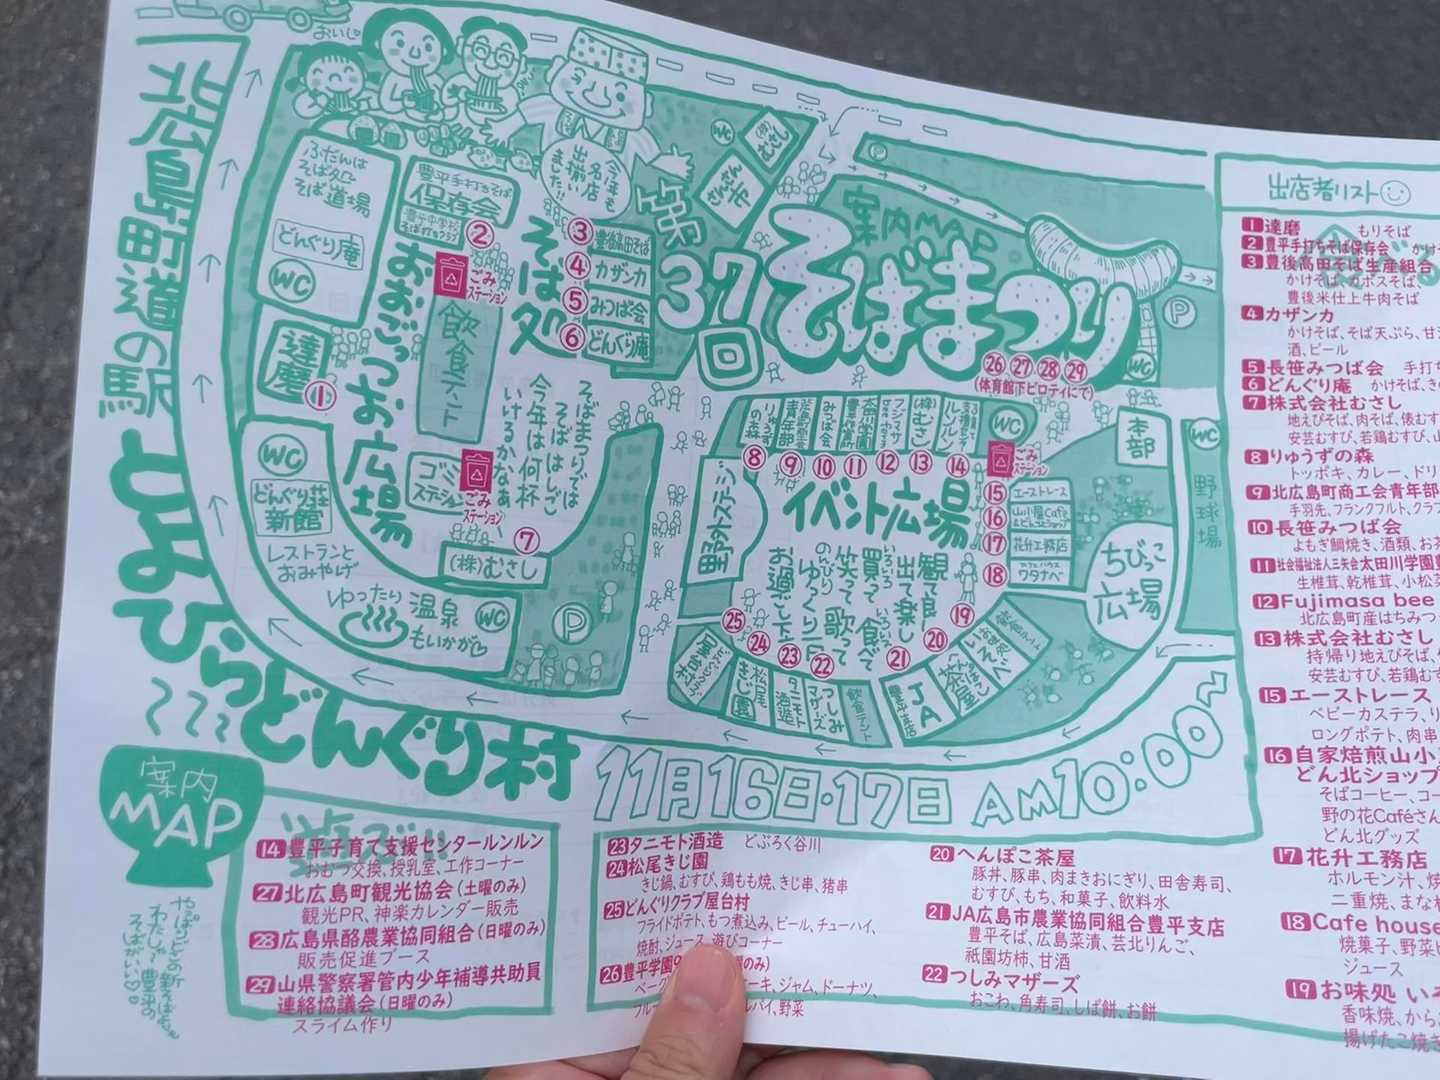 北広島町道の駅
とよひらどんぐり村
案内
MAP
おいし
ふだんは
そば処
そば道場
どんぐり庵
WC
豊平手打ちそば
保存会
②
今年も
名店
出揃い
ました!!
第
37
回
案内MAP
そばまつり
WC
(株)むさし
さんさん市
P
P
WC
そば処
③ 豊後高田そば
④ カザンカ
⑤ みつば会
⑥ どんぐり庵
おおごっつお広場
ごみ
ステーション
飲食テント
達磨
①
そばまつりでは
そばはしご
今年は何杯
いけるかなぁ
ゴミ
ステーション
ごみ
ステーション
WC
どんぐり荘
新館
レストランと
おみやげ
⑦
(株)むさし
ゆったり
温泉
もいかが
WC
P
㉖ ㉗ ㉘ ㉙
(体育館下ピロティにて)
りゅうずの森
青年部
みつば会
(株)むさし
⑧ ⑨ ⑩ ⑪ ⑫ ⑬ ⑭
WC
ごみ
ステーション
本部
WC
野球場
野外ステージ
イベント広場
⑮ エーストレース
⑯ 山小屋Cafe
⑰ 花升工務店
⑱ ワタナベ
ちびっこ
広場
観て良し
出て楽し
いろいろ
買って食べて
笑って歌って
のんびり
ゆっくり一日
お過ごし下さい
⑲
⑳
㉑
㉒
㉓
㉔
㉕
松尾
きじ園
タニモト
酒造
つしみ
マザーズ
飲食テント
JA
茶屋
11月16日・17日 AM10:00〜
案内
MAP
14 豊平子育て支援センタールンルン
おむつ交換、授乳室、工作コーナー
27 北広島町観光協会(土曜のみ)
観光PR、神楽カレンダー販売
28 広島県酪農業協同組合(日曜のみ)
販売促進ブース
29 山県警察署管内少年補導共助員
連絡協議会(日曜のみ)
スライム作り
23 タニモト酒造 どぶろく谷川
24 松尾きじ園
きじ鍋、むすび、鶏もも焼、きじ串、猪串
25 どんぐりクラブ屋台村
フライドポテト、もつ煮込み、ビール、チューハイ、
焼酎、ジュース、遊びコーナー
26 豊平学園
キ、ジャム、ドーナツ、
パイ、野菜
20 へんぽこ茶屋
豚丼、豚串、肉まきおにぎり、田舎寿司、
むすび、もち、和菓子、飲料水
21 JA広島市農業協同組合豊平支店
豊平そば、広島菜漬、芸北りんご、
祇園坊柿、甘酒
22 つしみマザーズ
おこわ、角寿司、しば餅、お餅
出店者リスト
1 達磨 もりそば
2 豊平手打ちそば保存会 かけそ
3 豊後高田そば生産組合
かけそば、カボスそば、
豊後米仕上牛肉そば
4 カザンカ
かけそば、そば天ぷら、甘
酒、ビール
5 長笹みつば会 手打ち
6 どんぐり庵 かけそば、き
7 株式会社むさし
地えびそば、肉そば、俵むす
安芸むすび、若鶏むすび、山
8 りゅうずの森
トッポキ、カレー、ドリ
9 北広島町商工会青年部
手羽先、フランクフルト、クラフ
10 長笹みつば会
よもぎ鯛焼き、酒類、お茶
11 社会福祉法人三矢会太田川学園豊
生椎茸、乾椎茸、小松菜
12 Fujimasa bee
北広島町産はちみつ
13 株式会社むさし
持帰り地えびそば、
安芸むすび、若鶏むす
15 エーストレース
ベビーカステラ、り
ロングポテト、肉串
16 自家焙煎山小屋
どん北ショップ
そばコーヒー、コー
野の花Caféさん
どん北グッズ
17 花升工務店
ホルモン汁、焼
二重焼、まな板
18 Cafe house
焼菓子、野菜
ジュース
19 お味処 いそ
香味焼、から
揚げたこ焼き